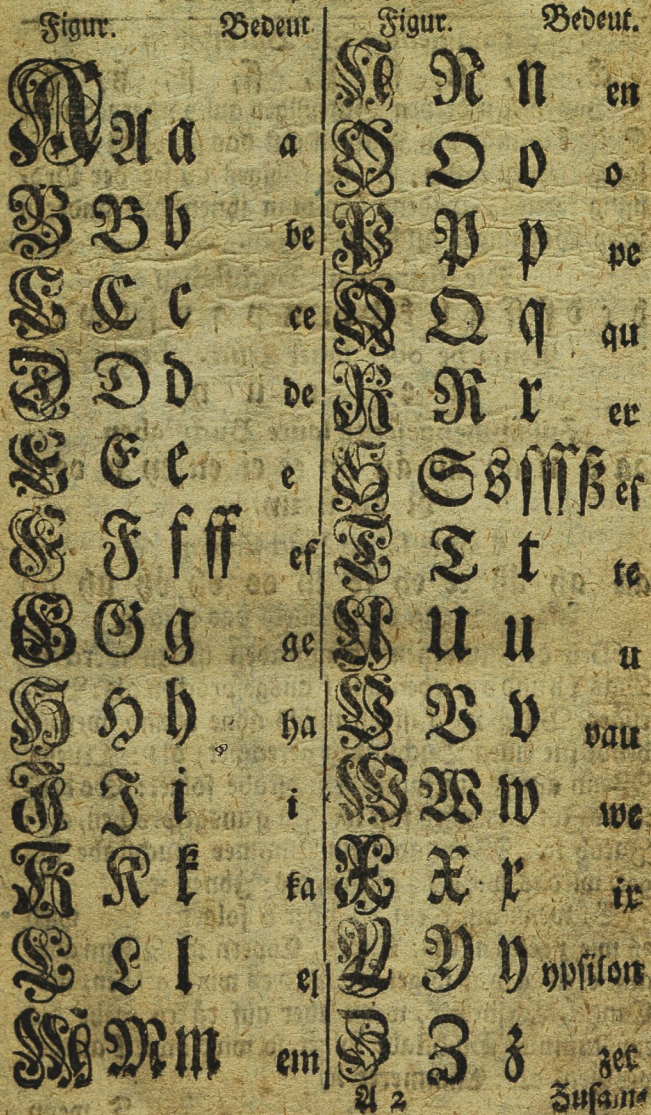 Figur. Bedeut
A A a a
B B b be
C C c ce
D D d de
E E e e
F F f ff ef
G G g ge
H H h ha
I I i i
K K k ka
L L l el
M M m em
Figur. Bedeut.
N N n en
O O o o
P P p pe
Q Q q qu
R R r er
S S s ſ ſſ ß eſ
T T t te
U U u u
V V v vau
W W w we
X X x ix
Y Y y ypsilon
Z Z z zet
A 2 Zuſam⸗